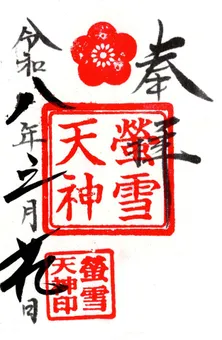 奉拝
螢雪
天神
螢雪
天神印
令和八年立月花日